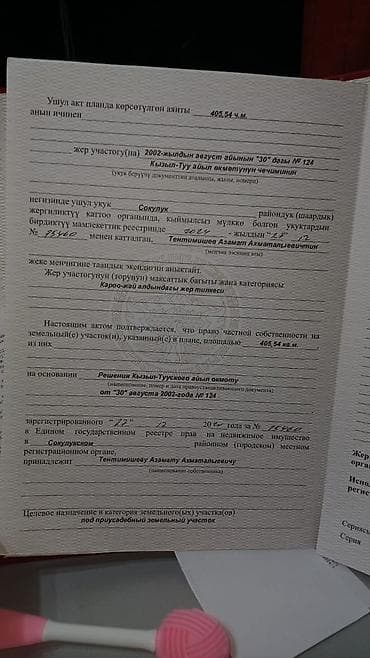 Ушул акт планда көрсөтүлгөн аянты 405,54 ч.м.
анын ичинен
жер участогу(на) 2002-жылдын август айынын "30" дагы № 124
Кызыл-Туу айыл өкмөтүнүн чечиминин
(укук берүүчү документтин аталышы, жылы, номери)
негизинде ушул укук Сокулук райондук (шаардык)
жергиликтүү каттоо органында, кыймылсыз мүлккө болгон укуктардын
бирдиктүү мамлекеттик реестринде 2024 - жылдын " " 12
№ 15460 менен катталган, Тентимишев Азамат Ахматалыевичтин
(менчик ээсинин аты)
жеке менчигине таандык экендигин аныктайт.
Жер участогунун (торунун) максаттык багыты жана категориясы
Короо-жай алдындагы жер тилкеси
Настоящим актом подтверждается, что право частной собственности на
земельный(е) участок(и), указанный(е) в плане, площадью 405,54 кв.м.
из них
на основании Решения Кызыл-Тууского айыл окмоту
(наименование, номер и дата правоустанавливающего документа)
от "30" августа 2002-года № 124
зарегистрированного " " 12 20 года за № 15460
в Едином государственном реестре прав на недвижимое имущество
в Сокулукском районном (городском) местном
регистрационном органе,
принадлежит Тентимишеву Азамату Ахматалыевичу
(наименование собственника)
Целевое назначение и категория земельного(ых) участка(ов)
под приусадебный земельный участок
Жер
орга
Испо
регис
Серияс
Серия